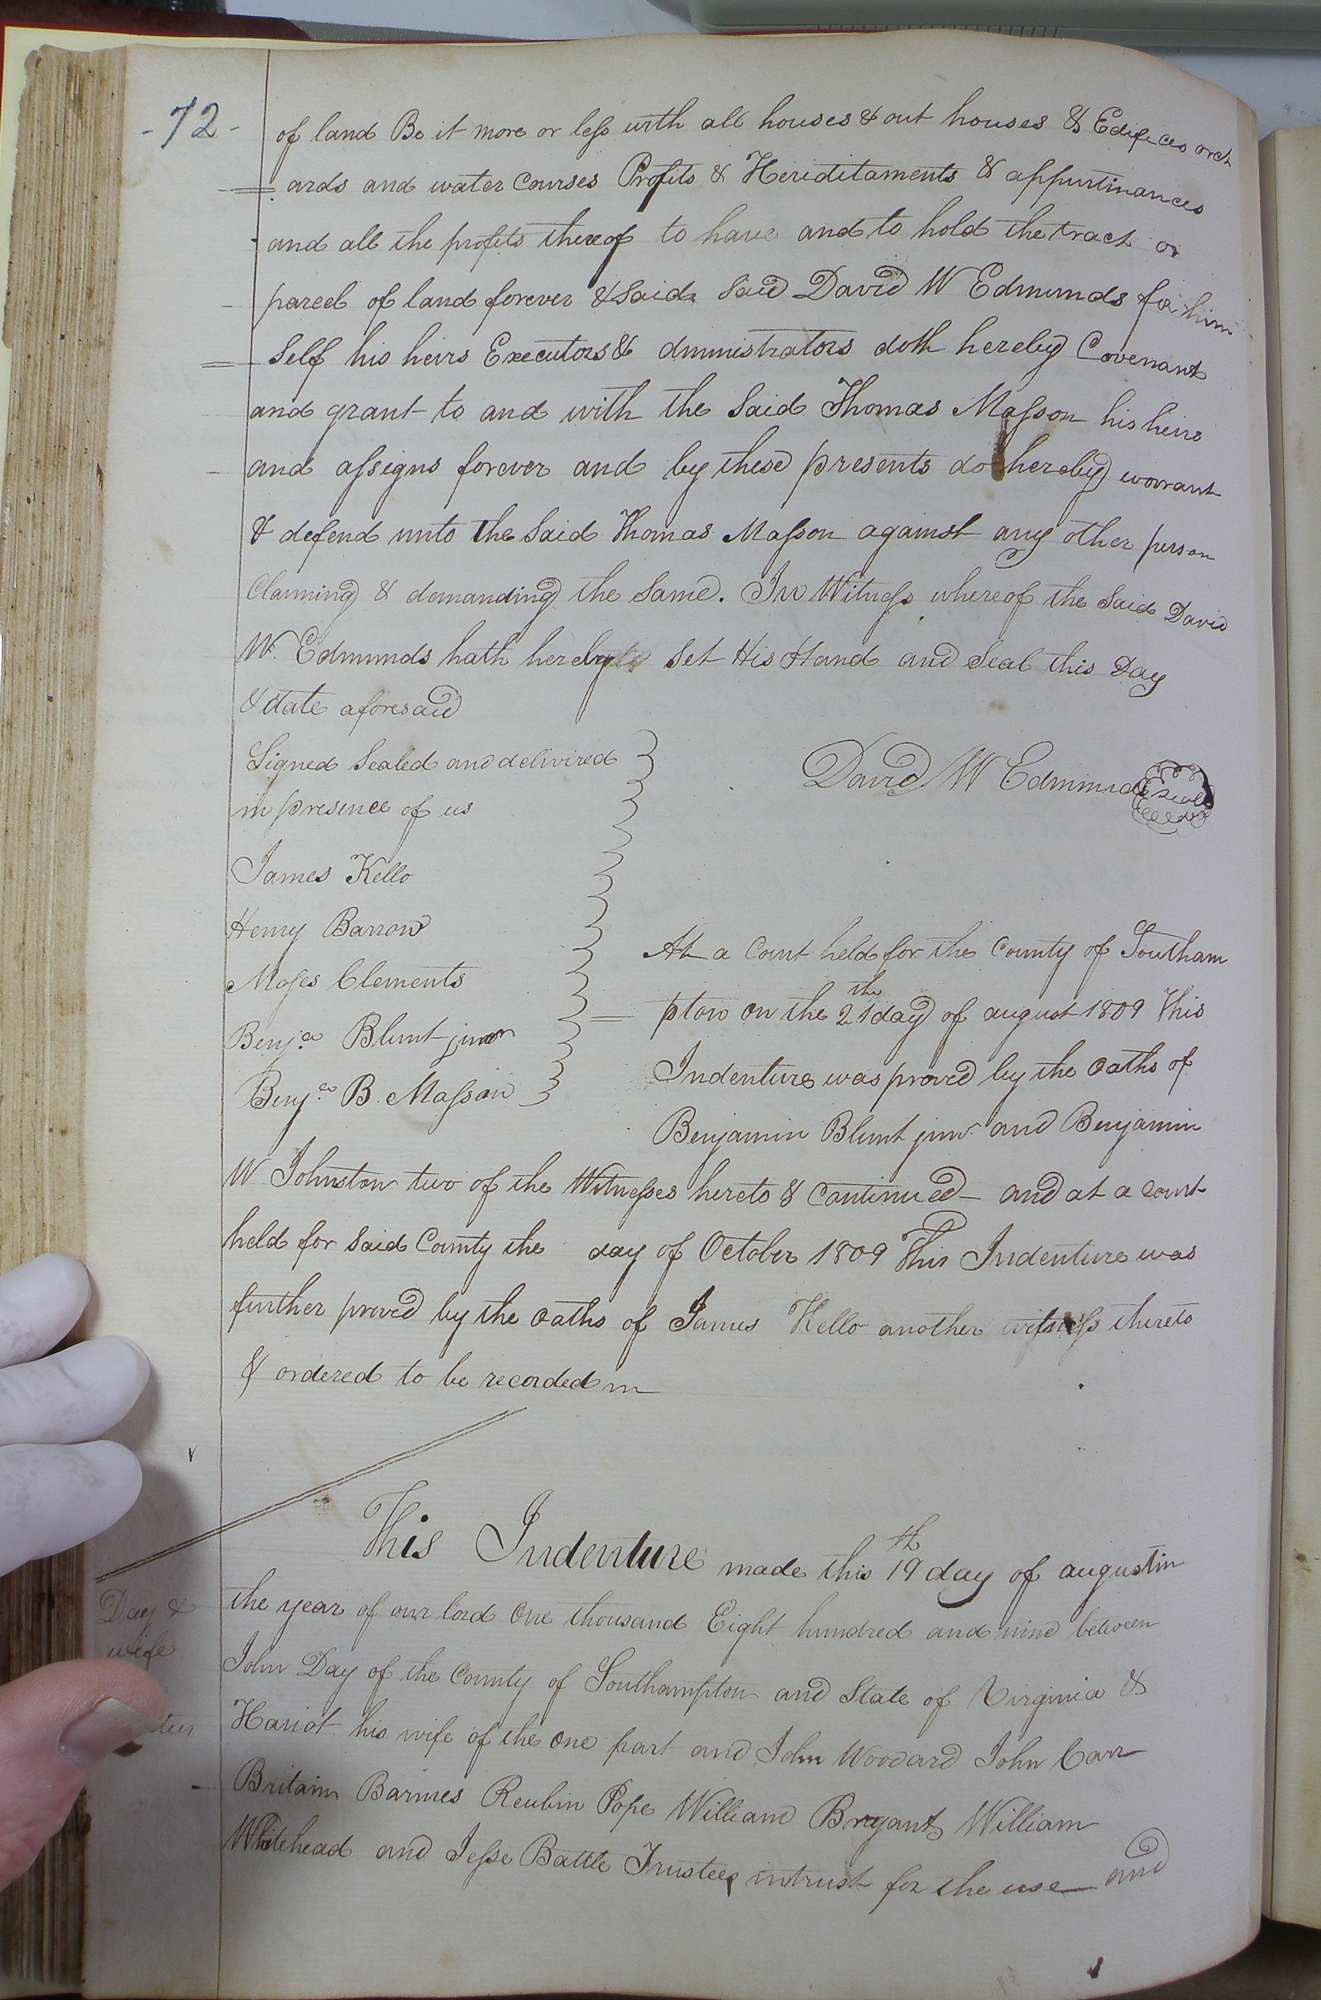 -72-
of land Be it more or less with all houses & out houses & Edifices orch
= ards and water Courses Profits & Hereditaments & appurtinances
and all the profits thereof to have and to hold the tract or
parcel of land forever & said said David W Edmunds for him
= Self his heirs Executors & dministrators doth hereby Covenant
and grant to and with the Said Thomas Masson his heirs
and assigns forever and by these presents do hereby warrant
& defend unto the Said Thomas Masson against any other person
Claiming & demanding the Same. In Witness whereof the Said David
W. Edmunds hath hereby set His Hand and Seal this Day
& date aforesaid
Signed Sealed and delivired
in presence of us
David W Edmunds Seal
James Kello
Henry Barrow
Moses Clements
Benja Blunt junr
Benja B. Masson
At a Court held for the County of Southam
= pton on the 21th day of august 1809 This
Indenture was proved by the oaths of
Benjamin Blunt junr. and Benjamin
W Johnston two of the Witnesses hereto & Continued - and at a Court
held for said County the day of October 1809 This Indenture was
further proved by the oaths of James Kello another witness thereto
& ordered to be recorded in
This Indenture made this 19th day of august in
Day &
wife
the year of our lord One thousand Eight hundred and nine between
John Day of the County of Southampton and State of Virginia &
Hariot his wife of the one part and John Woodard John Carr
Britain Barnes Reubin Pope William Bryant William
Whitehead and Jesse Battle Trustees intrust for the use and